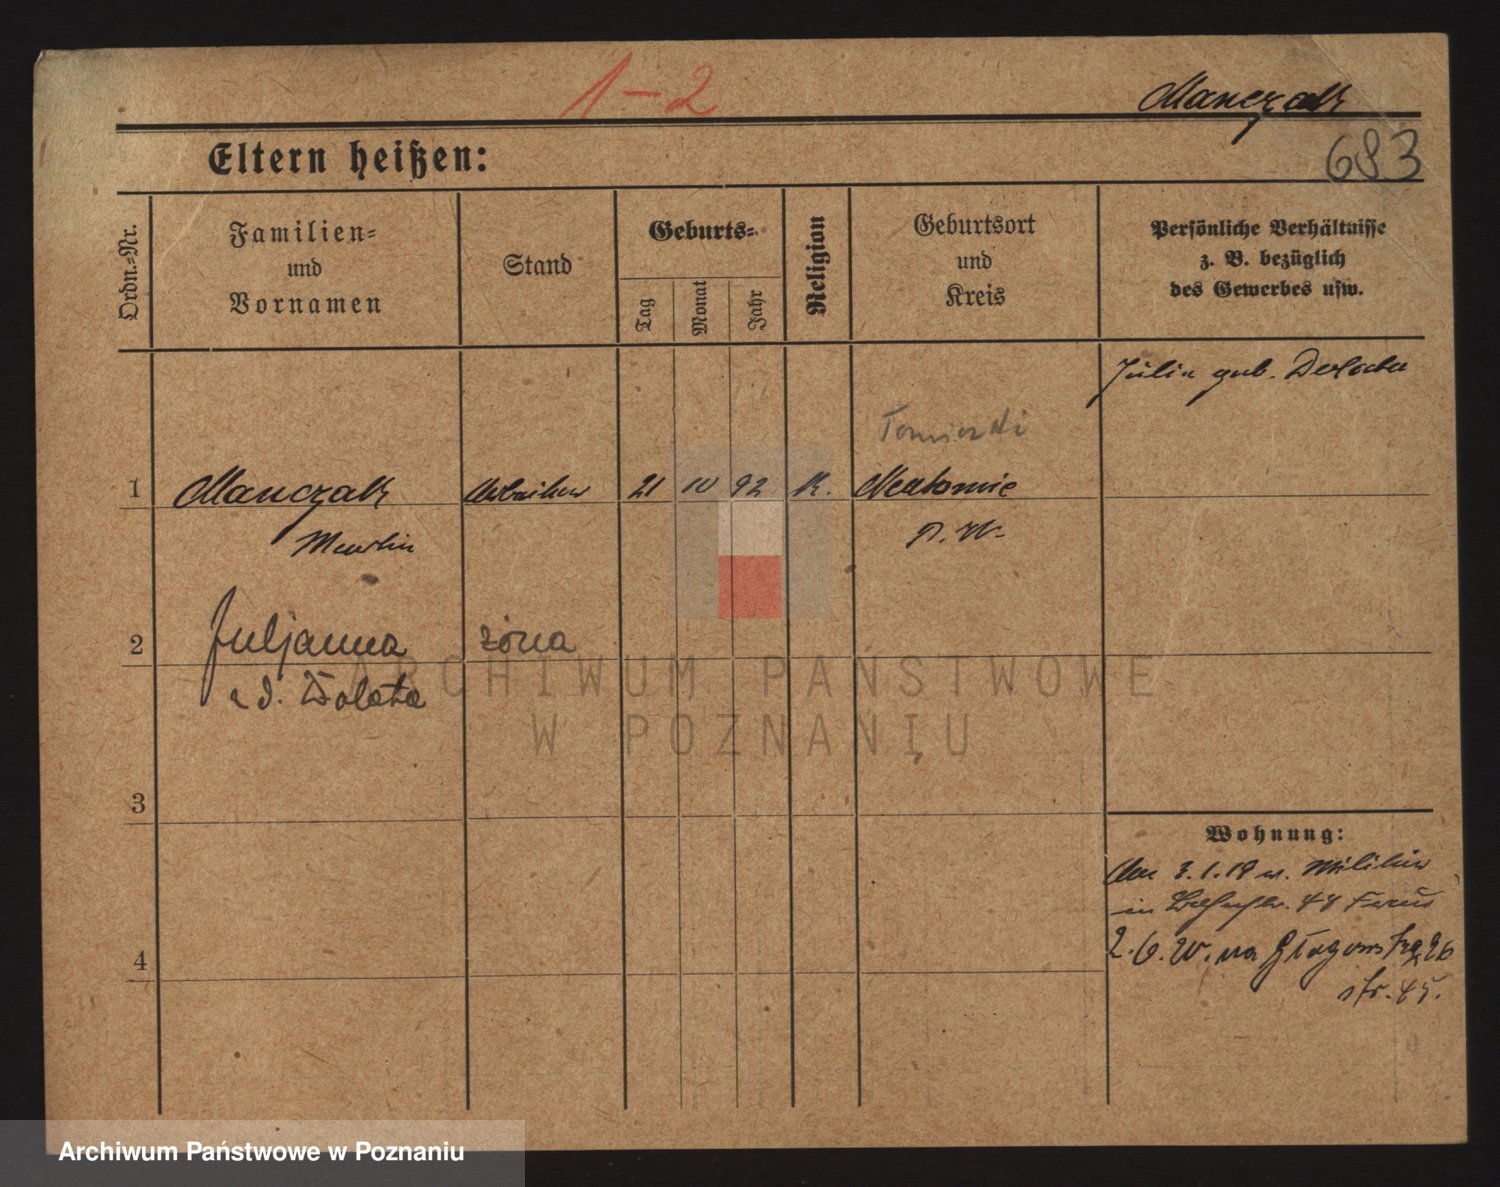 1-2
Manczak
683
Eltern heißen:
Ordn.-Nr.
Familien-
und
Vornamen
Stand
Geburts-
Tag
Monat
Jahr
Religion
Geburtsort
und
Kreis
Persönliche Verhältnisse
z. B. bezüglich
des Gewerbes usw.
Julia geb.
1
Manczak
Arbeiter
21
10
92
K.
Neutomie
Martin
2
Juljanna
żona
3
Wohnung:
Am 3.1.19 v. Militär
in 44
4
2.6.20. na
str. 45.
ARCHIWUM PAŃSTWOWE
W POZNANIU
Archiwum Państwowe w Poznaniu